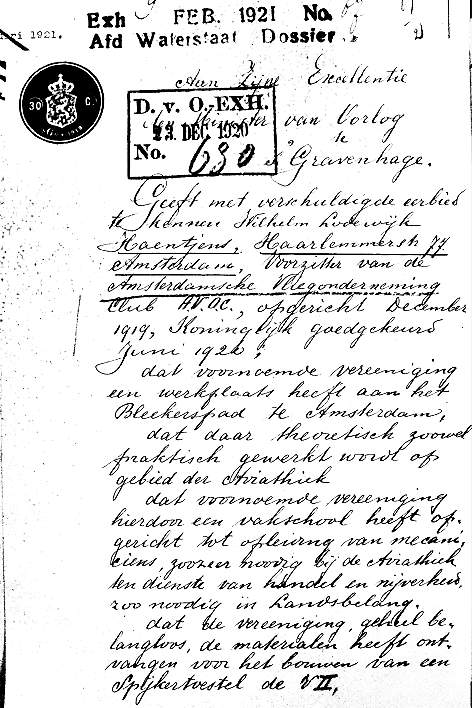 Exh FEB. 1921 No.
ri 1921. Afd Waterstaat Dossier.
Aan Zijne Excellentie
D. v. O. EXH.
13 DEC 1920
No. 630
den Minister van Oorlog
te
's Gravenhage.
30 C.
Geeft met verschuldigde eerbied
te kennen Wilhelm Lodewijk
Haentjens, Haarlemmerstr 77
Amsterdam, Voorzitter van de
Amsterdamsche Vliegonderneming
Club A.V.O.C., opgericht December
1919, Koninglijk goedgekeurd
Juni 1920,
dat voornoemde vereeniging
een werkplaats heeft aan het
Bleekerspad te Amsterdam,
dat daar theoretisch zoowel
praktisch gewerkt wordt op
gebied der Aviathiek
dat voornoemde vereeniging
hierdoor een vakschool heeft op-
gericht tot opleiding van mecani,
ciens, zoozeer noodig bij de Aviathiek
ten dienste van handel en nijverheid,
zoo noodig in Landsbelang.
dat de vereeniging, geheel be-
langloos, de materialen heeft ont-
vangen voor het bouwen van een
Spijkertoestel de V II,